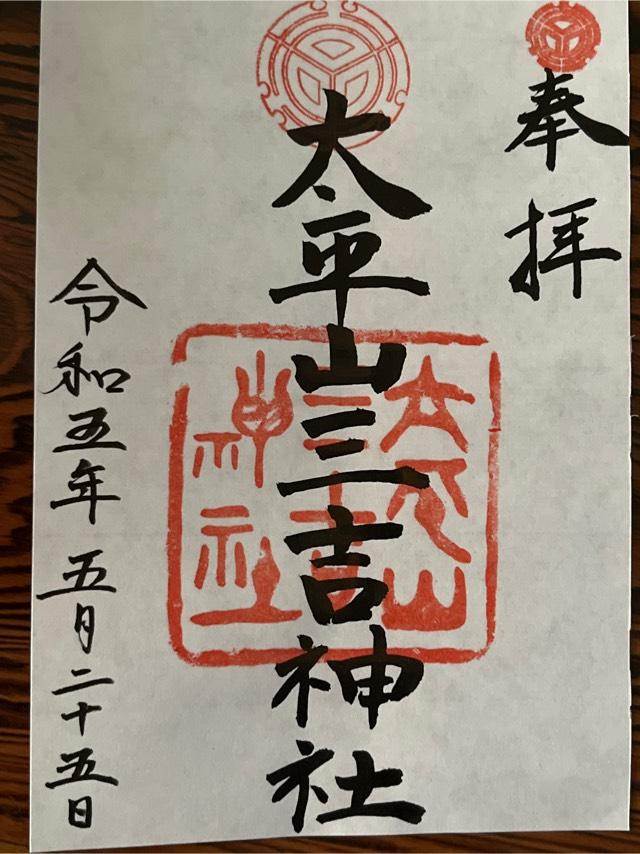 奉拝
太平山三吉神社
太平山
三吉
神社
令和五年五月二十五日